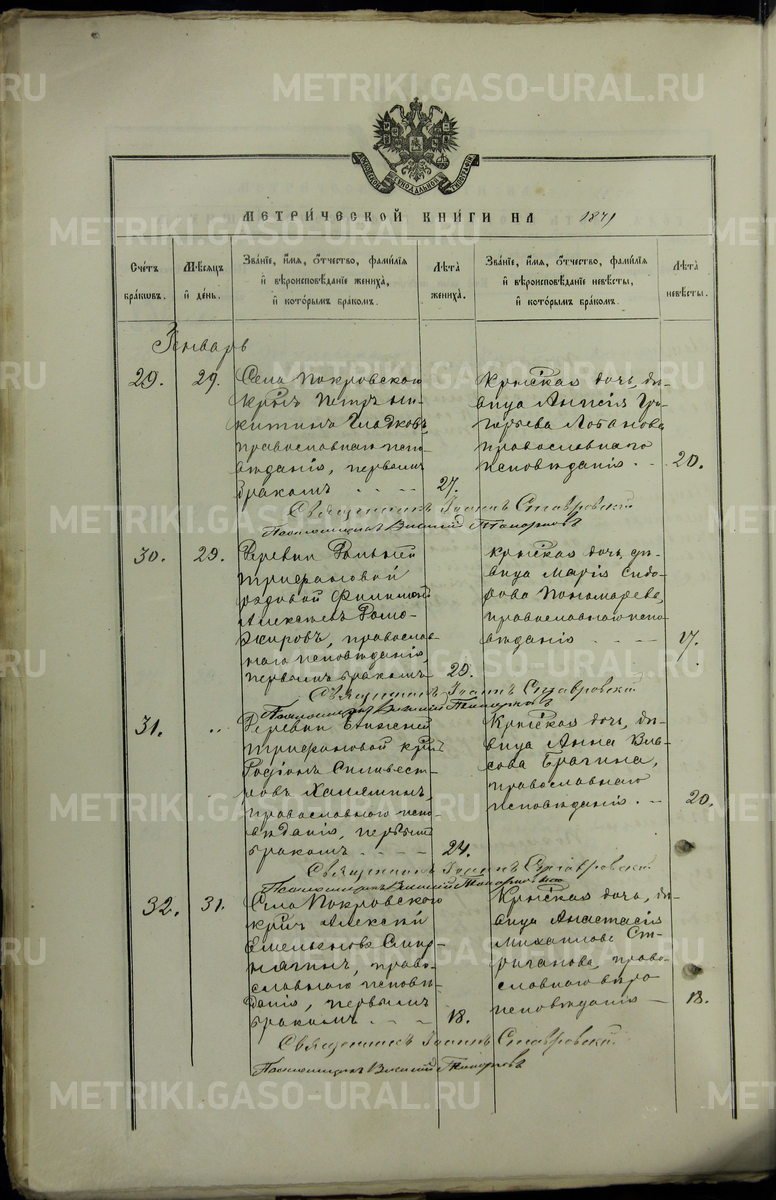 METRIKI.GASO-URAL.RU
МОСКОВСКОЙ СѴНОДАЛЬНОЙ ТИПОГРАФІИ
МЕТРИ́ЧЕСКОЙ КНИ́ГИ НА 1871
Сче́тъ бра́ковъ.
Мѣ́сяцъ и҆ де́нь.
Зва́нїе, и҆́мя, ѻ҆́тчество, фами́лїѧ
и҆ вѣроисповѣ́данїе жениха̀,
и҆ кото́рымъ бра́комъ.
Лѣ́та жениха̀.
Зва́нїе, и҆́мя, ѻ҆́тчество, фами́лїѧ
и҆ вѣроисповѣ́данїе невѣ́сты,
и҆ кото́рымъ бра́комъ.
Лѣ́та невѣ́сты.
Январь
29. 29.
Села Покровскаго
крнъ Петръ Ни-
китинъ Гладковъ,
православнаго испо-
вѣданія, первымъ
бракомъ - - - - 27.
Крнская дочь, дѣ-
вица Анисія Гри-
горьева Лобанова
православнаго
исповѣданія. - - 20.
Священникъ Іоаннъ Ставровскій
Псаломщикъ Василій Топорковъ
30. 29.
Деревни
Трифановой
рядовой Филимонъ
Алексѣевъ Рома-
жировъ, православ-
наго исповѣданія,
первымъ бракомъ 29.
крнская дочь, дѣ-
вица Марія Сидо-
рова Пономарева,
православнаго испо-
вѣданія - - - - 17.
Священникъ Іоаннъ Ставровскій
Псаломщикъ Василій Топорковъ
31. "
Деревни Ближней
Трифановой крнъ
Родіонъ Сильвест-
ровъ Халяминъ,
православнаго испо-
вѣданія, первымъ
бракомъ - - - - 24.
Крнская дочь, дѣ-
вица Анна Вла-
сова Брагина,
православнаго
исповѣданія. - - 20.
Священникъ Іоаннъ Ставровскій
Псаломщикъ Василій Топорковъ
32. 31.
Села Покровскаго
крнъ Алексѣй
Емельяновъ Смир-
нягинъ, право-
славнаго исповѣ-
данія, первымъ
бракомъ - - - 18.
Крнская дочь, дѣ-
вица Анастасія
Михайлова Ст-
риганова, право-
славнаго
исповѣданія - 18.
Священникъ Іоаннъ Ставровскій
Псаломщикъ Василій Топорковъ